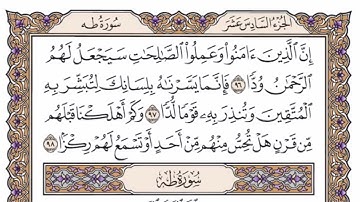 الجزء السادس عشر سورة طه
إِنَّ ٱلَّذِينَ ءَامَنُوا۟ وَعَمِلُوا۟ ٱلصَّـٰلِحَـٰتِ سَيَجْعَلُ لَهُمُ
ٱلرَّحْمَـٰنُ وُدًّا ٩٦ فَإِنَّمَا يَسَّرْنَـٰهُ بِلِسَانِكَ لِتُبَشِّرَ بِهِ
ٱلْمُتَّقِينَ وَتُنذِرَ بِهِۦ قَوْمًا لُّدًّا ٩٧ وَكَمْ أَهْلَكْنَا قَبْلَهُم
مِّن قَرْنٍ هَلْ تُحِسُّ مِنْهُم مِّنْ أَحَدٍ أَوْ تَسْمَعُ لَهُمْ رِكْزًۢا ٩٨
سورة طه